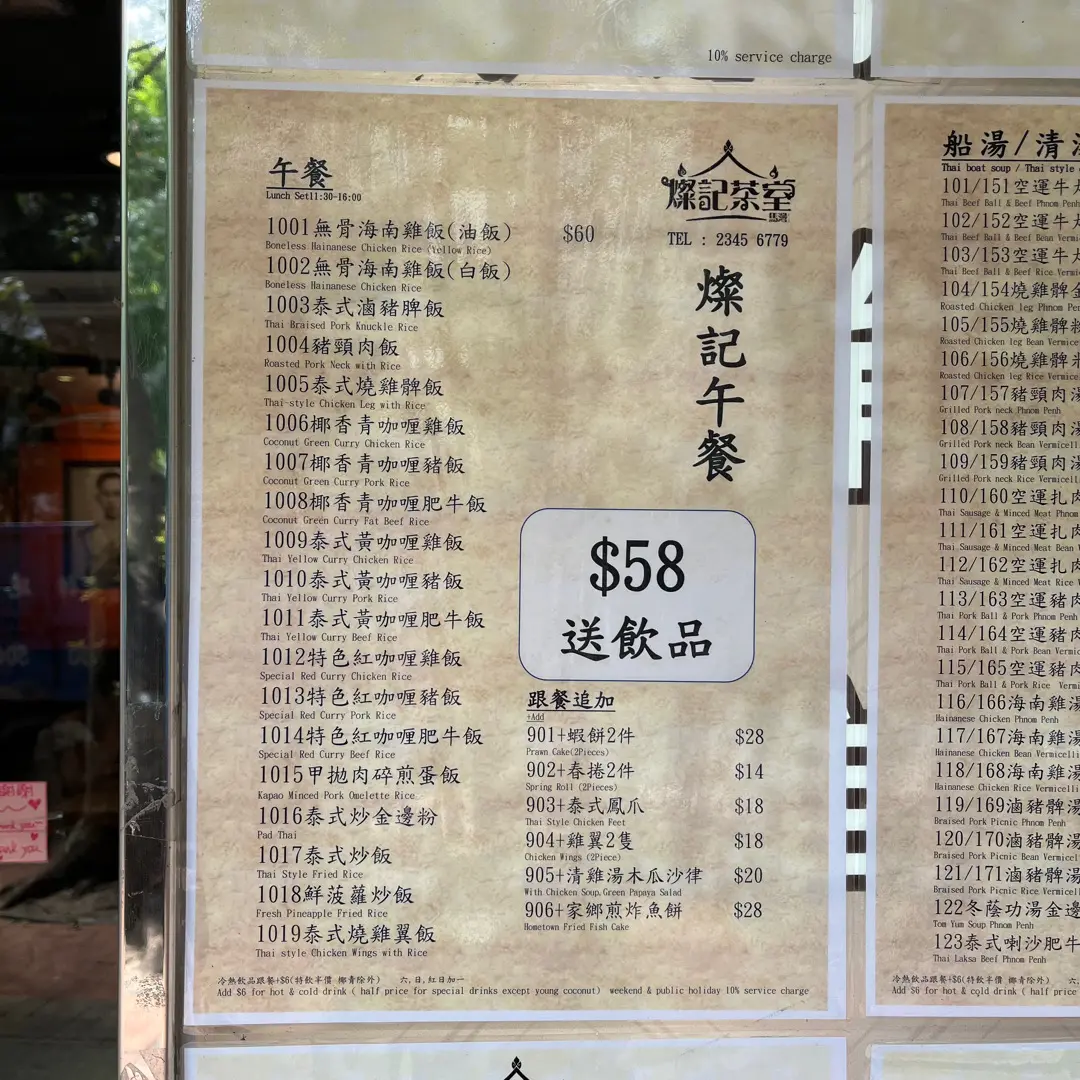 10% service charge
午餐
Lunch Set11:30-16:00
1001無骨海南雞飯(油飯) $60
Boneless Hainanese Chicken Rice (Yellow Rice)
1002無骨海南雞飯(白飯)
Boneless Hainanese Chicken Rice
1003泰式滷豬脾飯
Thai Braised Pork Knuckle Rice
1004豬頸肉飯
Roasted Pork Neck with Rice
1005泰式燒雞髀飯
Thai-style Chicken Leg with Rice
1006椰香青咖喱雞飯
Coconut Green Curry Chicken Rice
1007椰香青咖喱豬飯
Coconut Green Curry Pork Rice
1008椰香青咖喱肥牛飯
Coconut Green Curry Fat Beef Rice
1009泰式黃咖喱雞飯
Thai Yellow Curry Chicken Rice
1010泰式黃咖喱豬飯
Thai Yellow Curry Pork Rice
1011泰式黃咖喱肥牛飯
Thai Yellow Curry Beef Rice
1012特色紅咖喱雞飯
Special Red Curry Chicken Rice
1013特色紅咖喱豬飯
Special Red Curry Pork Rice
1014特色紅咖喱肥牛飯
Special Red Curry Beef Rice
1015甲拋肉碎煎蛋飯
Kapao Minced Pork Omelette Rice
1016泰式炒金邊粉
Pad Thai
1017泰式炒飯
Thai Style Fried Rice
1018鮮菠蘿炒飯
Fresh Pineapple Fried Rice
1019泰式燒雞翼飯
Thai style Chicken Wings with Rice
燦記茶堂
馬灣
TEL : 2345 6779
燦記午餐
$58
送飲品
跟餐追加
+Add
901+蝦餅2件 $28
Prawn Cake(2Pieces)
902+春捲2件 $14
Spring Roll (2Pieces)
903+泰式鳳爪 $18
Thai Style Chicken Feet
904+雞翼2隻 $18
Chicken Wings (2Piece)
905+清雞湯木瓜沙律 $20
With Chicken Soup,Green Papaya Salad
906+家鄉煎炸魚餅 $28
Hometown Fried Fish Cake
冷熱飲品跟餐+$6(特飲半價 椰青除外) 六,日,紅日加一
Add $6 for hot & cold drink ( half price for special drinks except young coconut) weekend & public holiday 10% service charge
船湯/清
Thai boat soup / Thai style
101/151空運牛
Thai Beef Ball & Beef Phnom Penh
102/152空運牛
Thai Beef Ball & Beef Bean Vermi
103/153空運牛
Thai Beef Ball & Beef Rice Vermi
104/154燒雞髀金
Roasted Chicken leg Phnom Pe
105/155燒雞髀粉
Roasted Chicken leg Bean Vermice
106/156燒雞髀米
Roasted Chicken leg Rice Vermice
107/157豬頸肉湯
Grilled Pork neck Phnom Penh
108/158豬頸肉湯
Grilled Pork neck Bean Vermicelli
109/159豬頸肉湯
Grilled Pork neck Rice Vermicelli
110/160空運扎肉
Thai Sausage & Minced Meat Phnom
111/161空運扎肉
Thai Sausage & Minced Meat Bean
112/162空運扎肉
Thai Sausage & Minced Meat Rice
113/163空運豬肉
Thai Pork Ball & Pork Phnom Penh
114/164空運豬肉
Thai Pork Ball & Pork Bean Vermi
115/165空運豬肉
Thai Pork Ball & Pork Rice Vermi
116/166海南雞湯
Hainanese Chicken Phnom Penh
117/167海南雞湯
Hainanese Chicken Bean Vermicelli
118/168海南雞湯
Hainanese Chicken Rice Vermicelli
119/169滷豬髀湯
Braised Pork Picnic Phnom Penh
120/170滷豬髀湯
Braised Pork Picnic Bean Vermicel
121/171滷豬髀湯
Braised Pork Picnic Rice Vermicel
122冬蔭功湯金邊
Tom Yum Soup Phnom Penh
123泰式喇沙肥牛
Thai Laksa Beef Phnom Penh
冷熱飲品跟餐+$6(特飲半價 椰青除外) 六
Add $6 for hot & cold drink ( half price